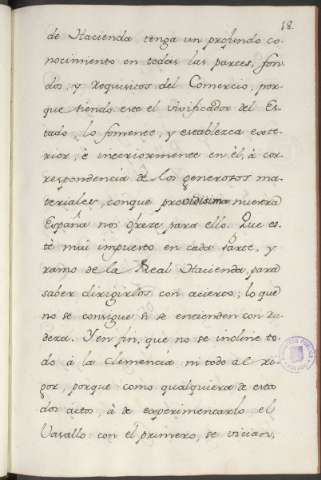 18.
de Hacienda tenga un profundo co-
nocimiento en todas las partes, fon-
dos, y requisitos del Comercio, por-
que siendo este el vivificador del Es-
tado, lo fomente, y establezca exte-
rior, è interiormente en èl, à cor-
respondencia de los generosos ma-
teriales, conque providisima nuestra
España nos ofreze para ello. Que es-
tè mui impuesto en cada Parte, y
ramo de la Real Hacienda, para
saber dirigirlos con acierto; lo que
no se consigue si se entienden con
Y en fin, que no se incline to-
do à la Clemencia ni todo al ri-
gor, porque como qualquiera de estos
dos actos, à de experimentarlo el
Vasallo con el primero, se vician,